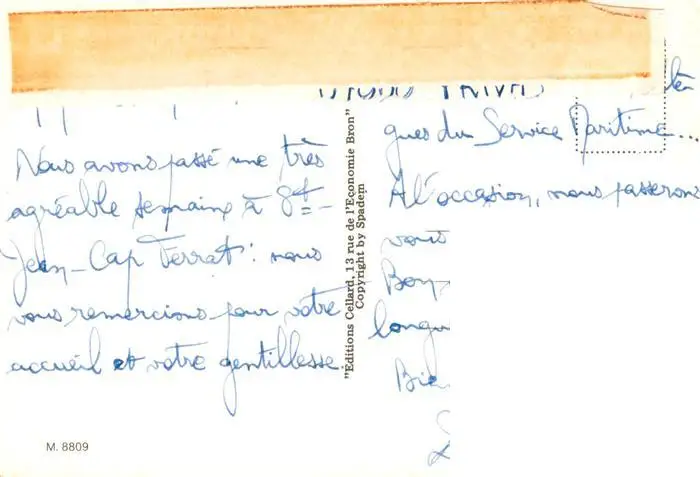 Nous avons passé une très
agréable semaine à St-
Jean-Cap Ferrat : nous
vous remercions pour votre
accueil et votre gentillesse
M. 8809
"Editions Cellard, 13 rue de l'Economie Bron"
Copyright by Spadem
gues du Service Maritime...
A l'occasion, nous passerons
vous
Bon
longu
Bie